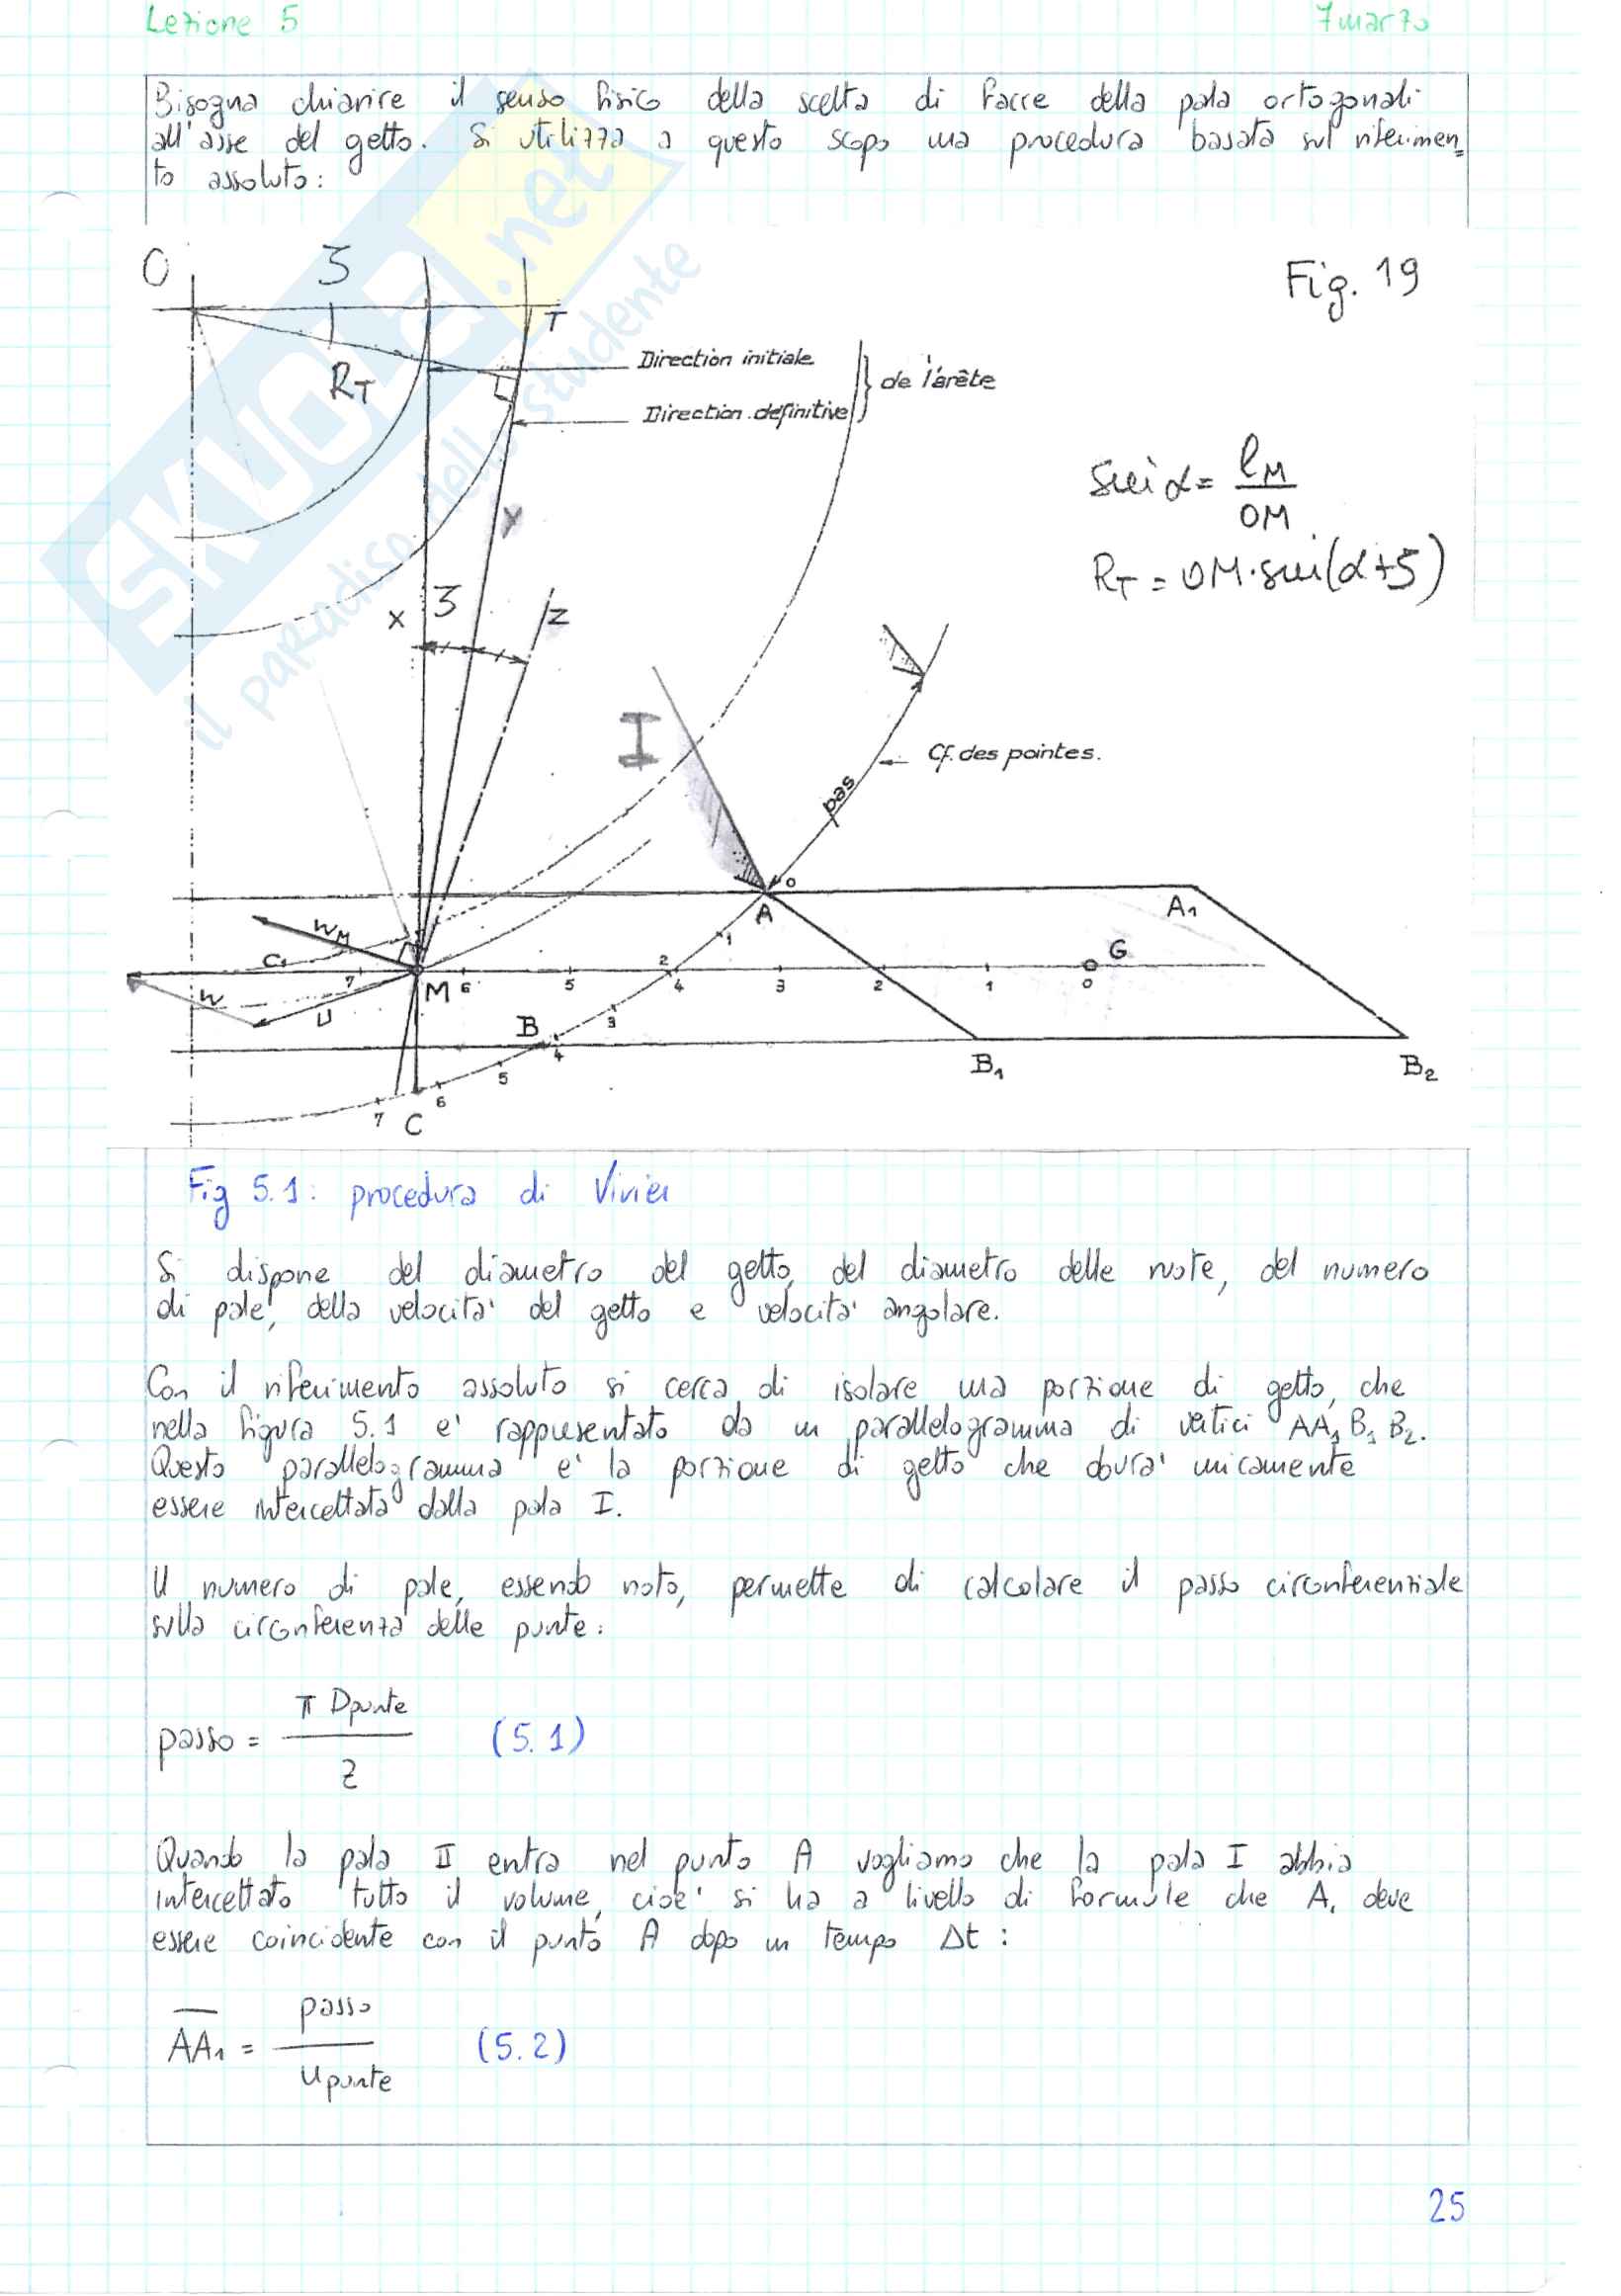 Lezione 5
7 marzo
Bisogna chiarire il senso fisico della scelta di facce della pala ortogonali
all'asse del getto. Si utilizza a questo scopo una procedura basata sul riferimen=
to assoluto:
Fig. 19
O
3
T
RT
Direction initiale
Direction definitive
de l'arête
sin α = lM / OM
RT = OM · sin(α+5)
Y
X
3
Z
I
pas
Cf. des pointes.
0
A
A1
1
G
WM
C1
7
M
6
5
2
4
3
2
1
0
W
U
B
4
3
B1
B2
5
6
7
C
SKUOLA.net
il paradiso dello studente
Fig 5.1: procedura di Vivier
Si dispone del diametro del getto, del diametro delle ruote, del numero
di pale, della velocita' del getto e velocita' angolare.
Con il riferimento assoluto si cerca di isolare una porzione di getto, che
nella figura 5.1 e' rappresentato da un parallelogramma di vertici AA1 B1 B2.
Questo parallelogramma e' la porzione di getto che dovra' unicamente
essere intercettata dalla pala I.
Il numero di pale, essendo noto, permette di calcolare il passo circonferenziale
sulla circonferenza delle punte:
passo = π Dpunte / Z (5.1)
Quando la pala II entra nel punto A vogliamo che la pala I abbia
intercettato tutto il volume, cioe' si ha a livello di formule che A1 deve
essere coincidente con il punto A dopo un tempo Δt :
AA1 = passo / upunte (5.2)
25